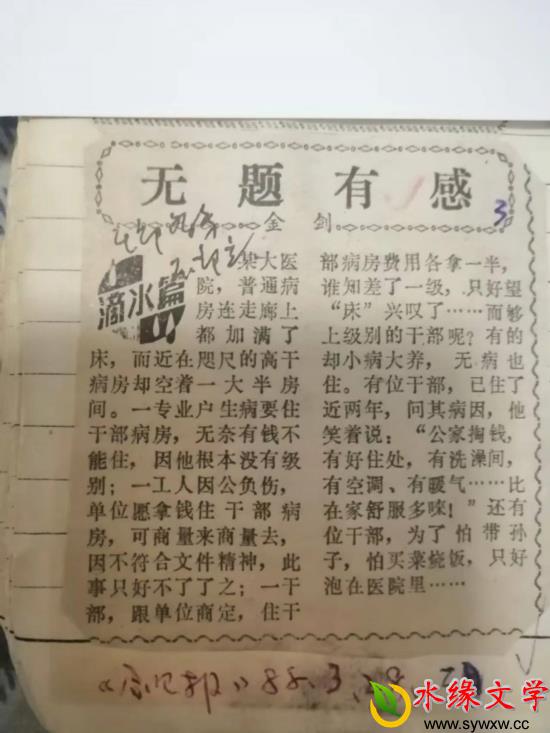 无题有感
金剑
3
滴水篇
某大医
院，普通病
房连走廊上
都加满了
床，而近在咫尺的高干
病房却空着一大半房
间。一专业户生病要住
干部病房，无奈有钱不
能住，因他根本没有级
别；一工人因公负伤，
单位愿拿钱住干部病
房，可商量来商量去，
因不符合文件精神，此
事只好不了了之；一干
部，跟单位商定，住干
部病房费用各拿一半，
谁知差了一级，只好望
“床”兴叹了……而够
上级别的干部呢？有的
却小病大养，无病也
住。有位干部，已住了
近两年，问其病因，他
笑着说：“公家掏钱，
有好住处，有洗澡间，
有空调、有暖气……比
在家舒服多喽！”还有
位干部，为了怕带孙
子，怕买菜烧饭，只好
泡在医院里……
水缘文学
www.sywxw.cc